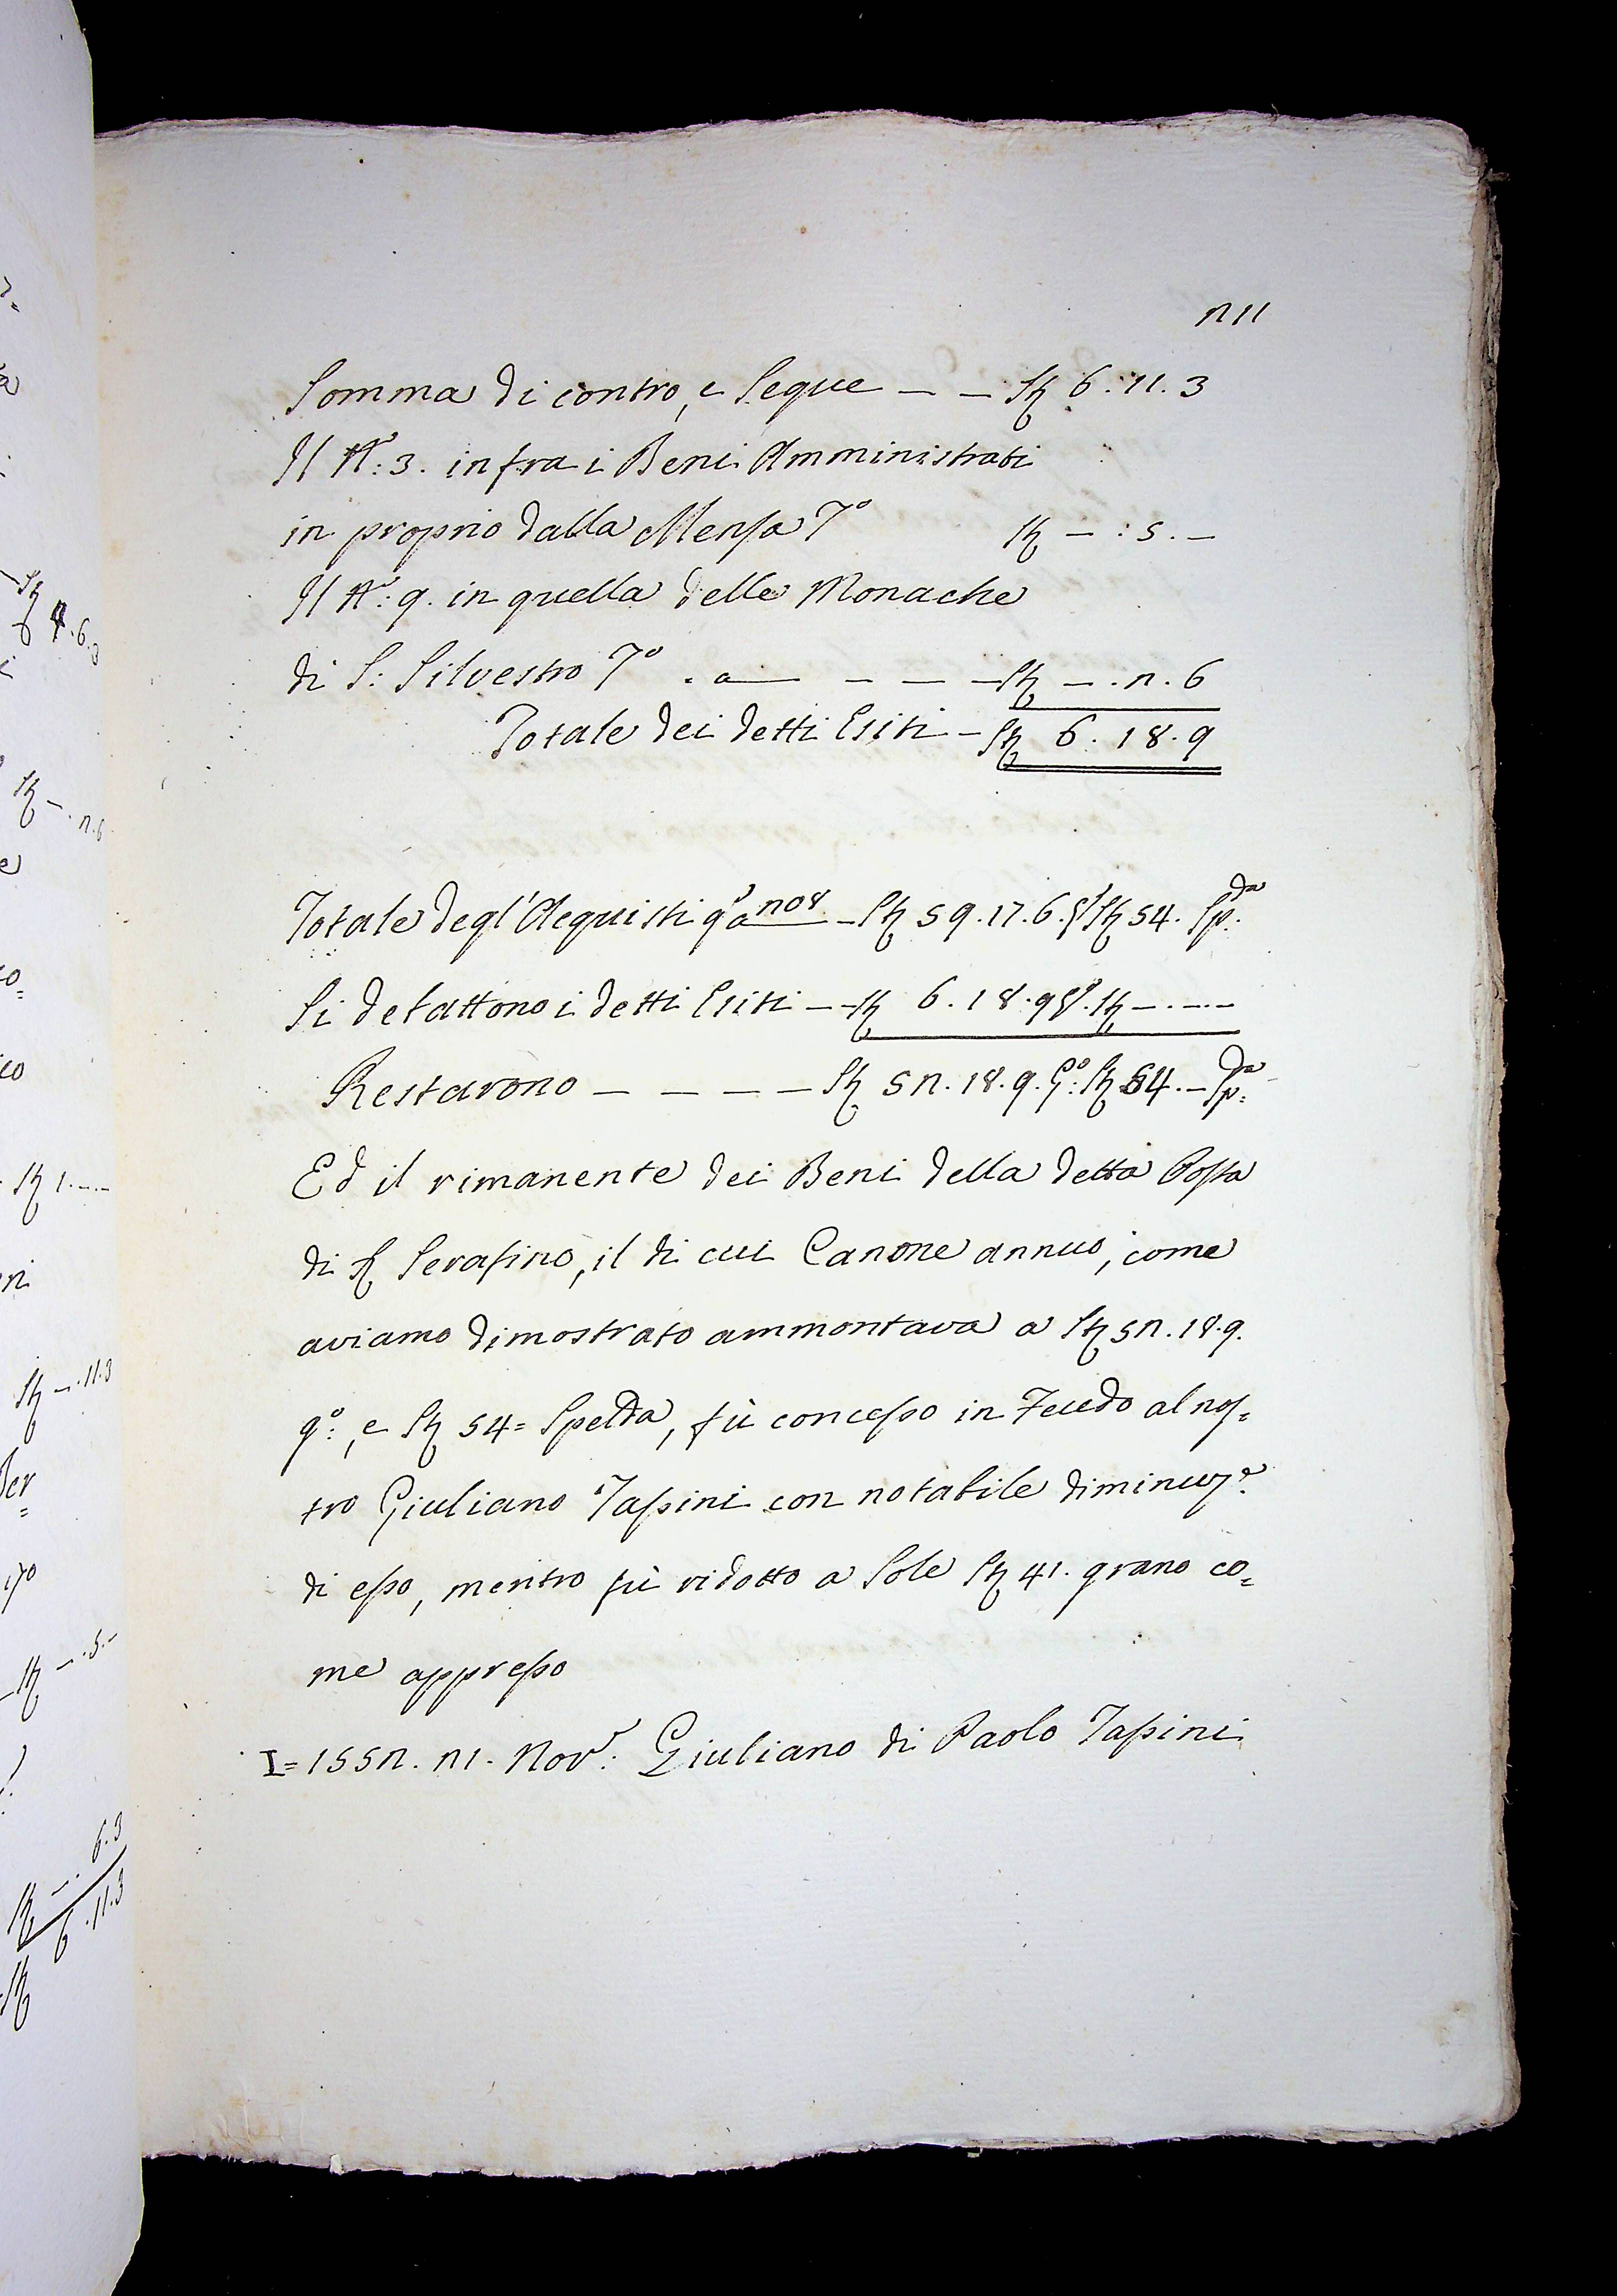 211
Somma di contro, e Segue – – St 6. 11. 3
Il N.º: 3. infra i Beni Amministrati
in proprio dalla Mensa Tº St – : 5. –
Il N.º: 9. in quella delle Monache
di S: Silvestro Tº . a — – – – St –. 2. 6
Totale dei detti Esiti – St 6. 18. 9
Totale degl'Acquisti gº a 208 – St 59. 17. 6. gº St 54. Spda.
Si debattono i detti Esiti – – St 6. 18. 9 gº. St –. –. –
Restarono – – – – St 52. 18. 9. gº: St 54. – Spda:
Ed il rimanente dei Beni della detta Posta
di St Serafino, il di cui Canone annuo, come
aviamo dimostrato ammontava a St 52. 18. 9.
gº:, e St 54= Spelda, fù concesso in Feudo al nos=
tro Giuliano Tassini con notabile diminuz.e
di esso, mentro fù ridotto a Sole St 41. grano co=
me appresso
I= 1552. 21. Nov.e: Giuliano di Paolo Tassini